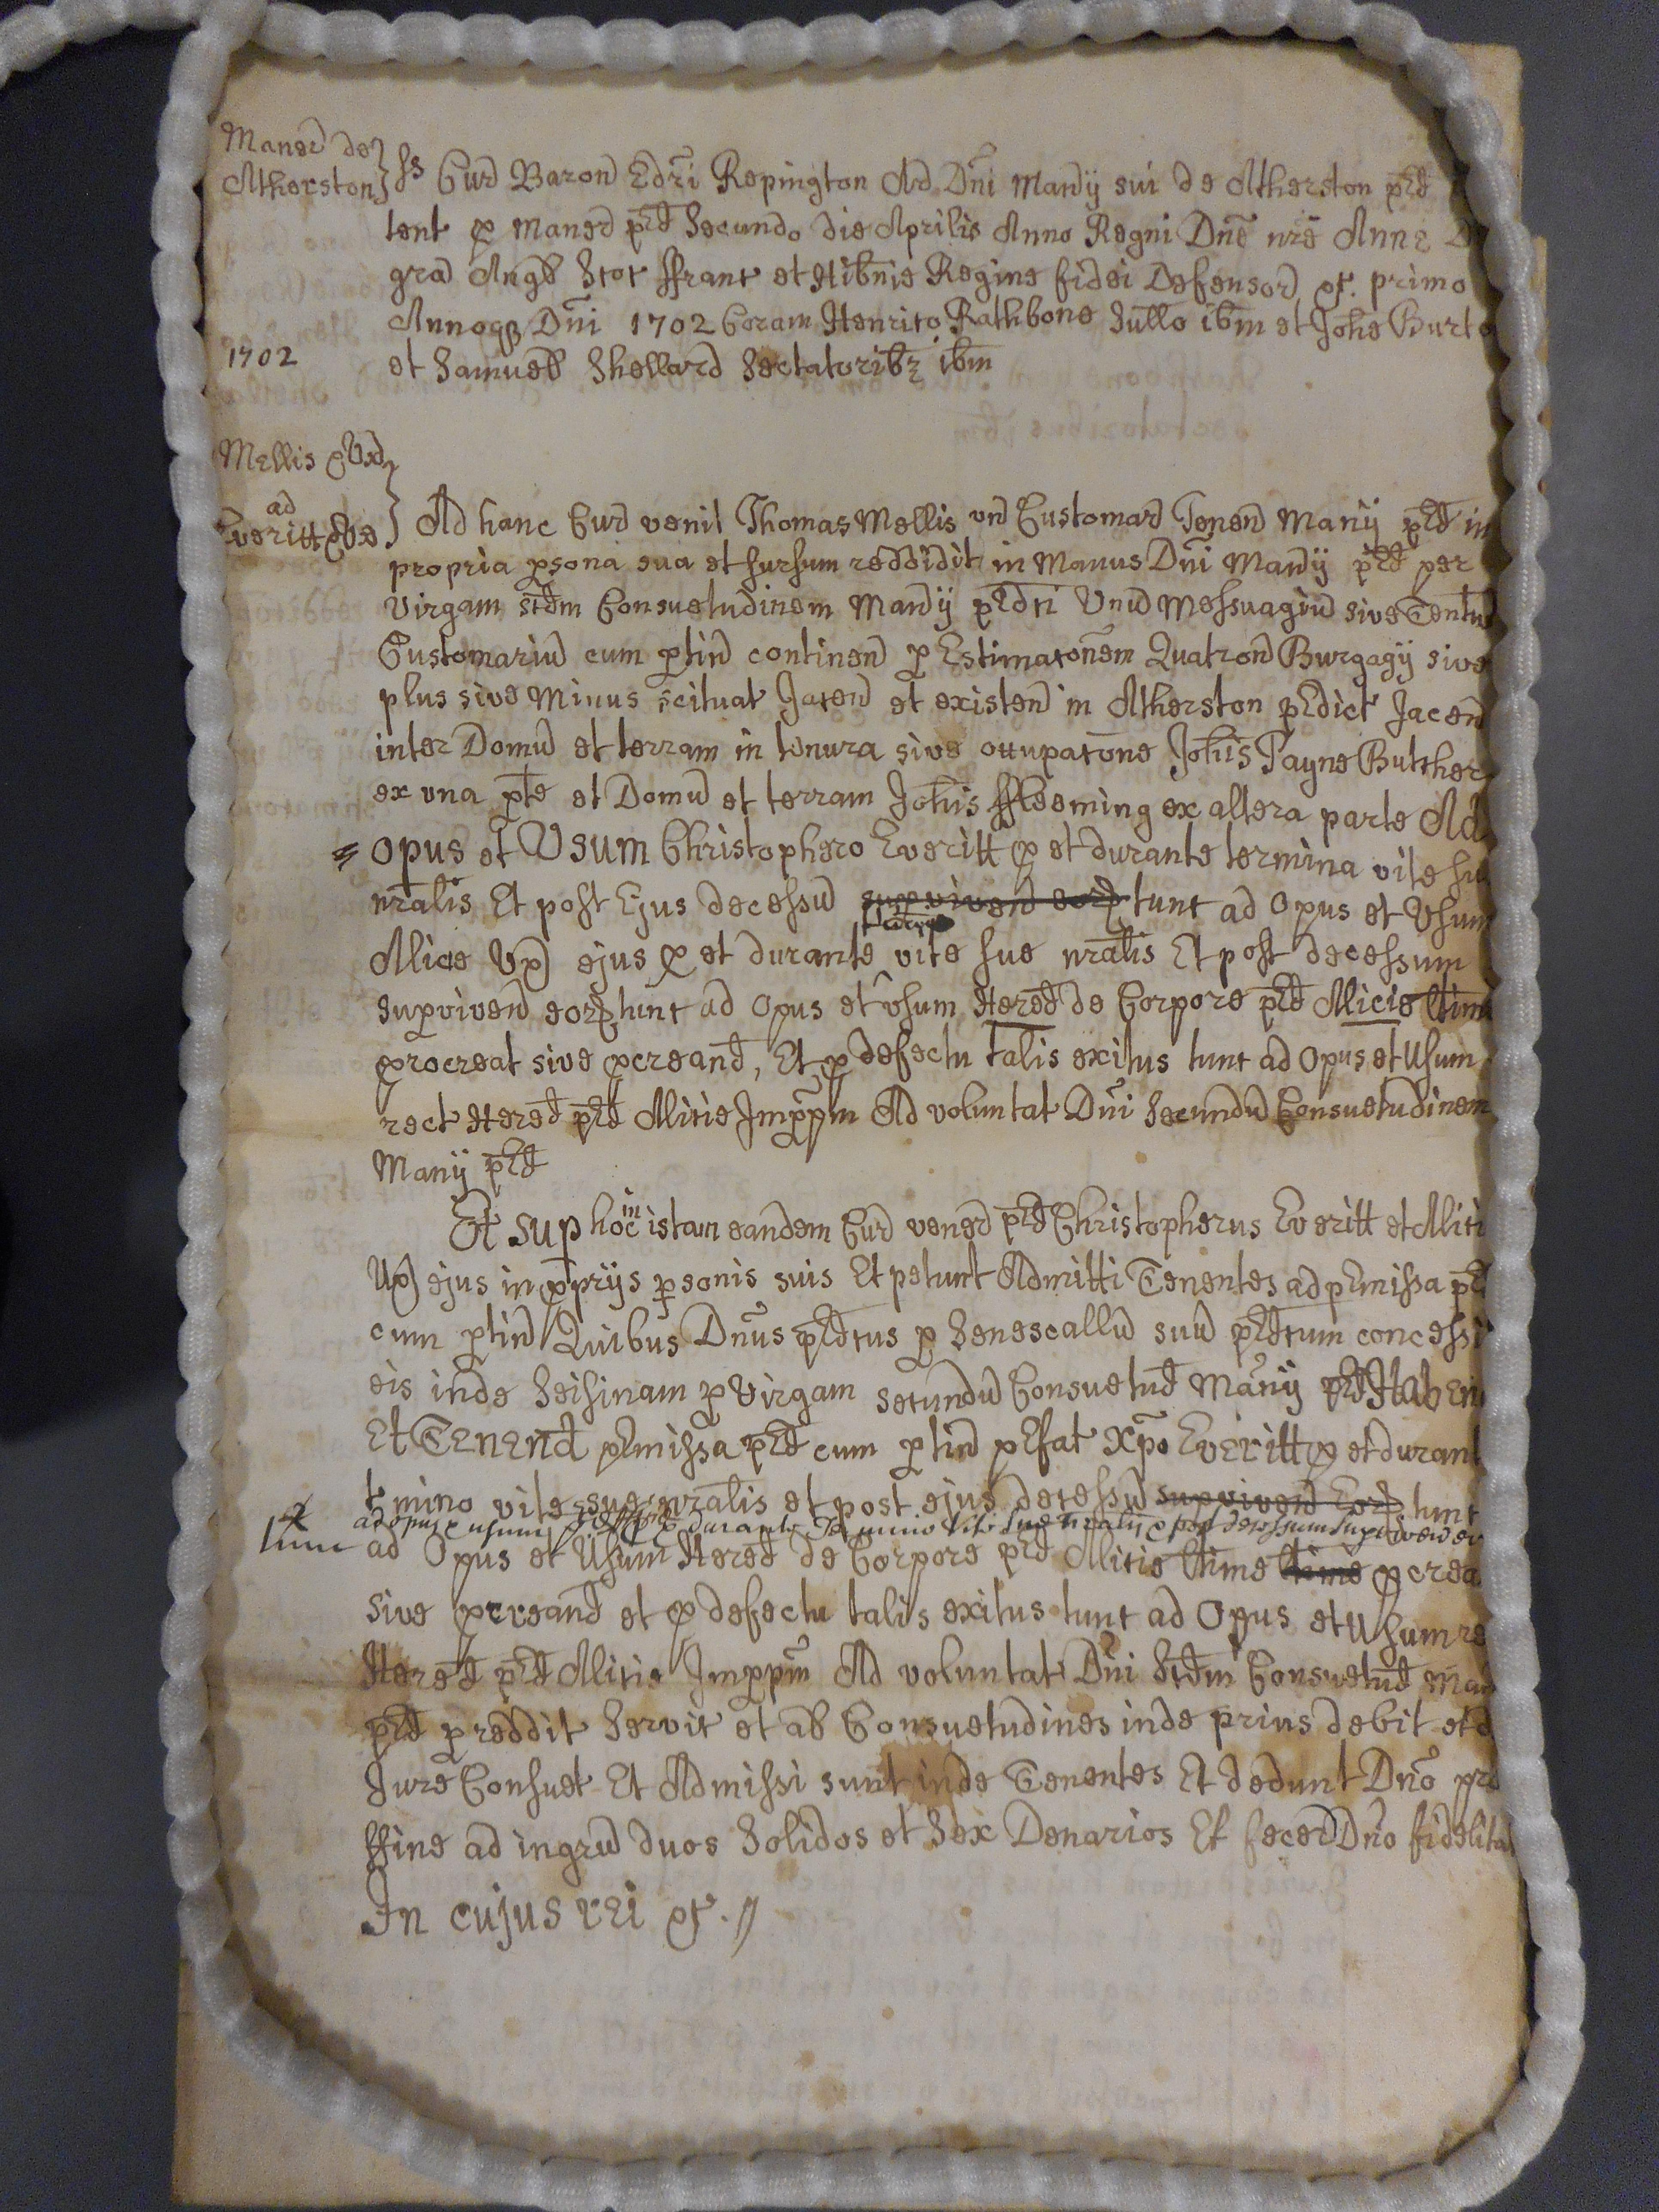 Manerd de
Atherston } ss Curd Barond Edri Repington Ard Dni Manij sui de Atherston pred
tent p Manerd pred Secundo die Aprilis Anno Regni Dne nre Anne
grad Angl Scot ffranc et Hibnie Regine fidei Defensord &c. primo
Annoq Dni 1702 Coram Henrico Rathbone Sullo ibm et Johe Burto
1702
et Samuel Shellard Sectatoribz ibm
Mellis & Uxd
ad
Everitt & Uxe } Ad hanc Curd venit Thomas Mellis und Customard Tenend Manij pred in
propria psona sua et sursum reddidit in Manus Dni Manij pred per
Virgam scdm Consuetudinem Manij predci Unud Messuagiud sive Tentud
Customariud cum ptind continend p Estimaconem Quatrond Burgagij sive
plus sive Minus scituat Jacend et existend in Atherston predict Jacend
inter Domud et terram in tenura sive occupacone Johis Payne Butcher
ex una pte et Domud et terram Johis ffleeming ex altera parte Ad
opus et Usum Christophero Everitt p et durante termina vite su
nralis Et post Ejus decessud supvivend eord tunc ad Opus et Usum
Alicie Ux ejus p et durante vite sue nralis Et post decessum
supvivend eord tunc ad opus et usum Hered de Corpore pred Alicie ltime
procreat sive pcreand, Et p defectu talis exitus tunc ad Opus et Usum
rect Hered pred Alicie Imppm Ad voluntat Dni Secundud Consuetudinem
Manij pred
Et sup hoc in istam eandem Curd venerd pred Christopherus Everitt et Alici
Ux ejus in pprijs psonis suis Et petunt Admitti Tenentes ad pmissa pred
cum ptind Quibus Dnus predcus p Senescallud suud predcum concessi
eis inde Seisinam p Virgam secundud Consuetud Manij pred Haben
Et Tenend pmissa pred cum ptind prefat Xpo Everitt p et durant
tmino vite sue nralis et post ejus decessud supvivend Eord tunc
ad opus & usum p & durante Termino vite sue nralis & post decessum supvivend eor
tunc ad Opus et Usum Hered de Corpore pred Alicie ltime ltime pcrea
sive pcreand et p defectu talis exitus tunc ad Opus et Usum re
Hered pred Alicie Imppm Ad voluntat Dni Scdm Consuetud Man
pred p reddit Servic et al Consuetudines inde prius debit et d
Jure Consuet Et Admissi sunt inde Tenentes Et dedunt Dno pro
ffine ad ingrud duos Solidos et Sex Denarios Et fecerd Dno fidelitat
In cujus rei &c. //